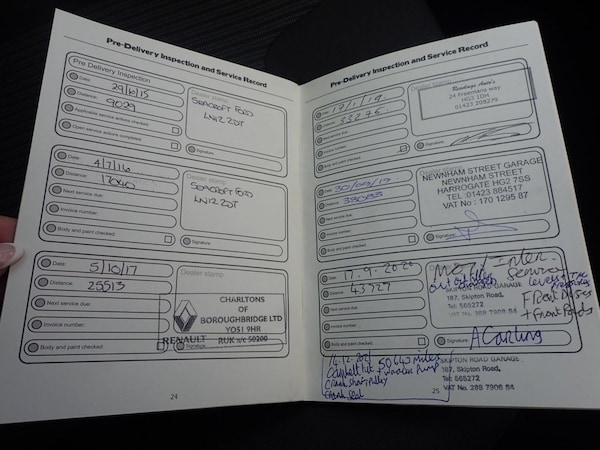 Pre-Delivery Inspection and Service Record
Pre Delivery Inspection
Date: 29/6/15
Distance: 9029
Applicable service actions checked
Open service actions completed
Dealer stamp
SEACROFT FORD
LN12 2DT
Date: 4/7/16
Distance: 17040
Next service due:
Invoice number:
Body and paint checked
Dealer stamp
SEACROFT FORD
LN12 2DT
Signature:
Date: 5/10/17
Distance: 25513
Next service due:
Invoice number:
Body and paint checked
Dealer stamp
CHARLTONS
OF
BOROUGHBRIDGE LTD
YO51 9HR
RENAULT RUK n/c 50200
Signature:
24
Pre-Delivery Inspection and Service Record
Date: 17/1/19
Distance: 33275
Next service due:
Invoice number:
Body and paint checked
24 Freemans way
HG3 1DH
01423 209279
Signature:
Date:
Distance:
Next service due:
Invoice number:
Body and paint checked
NEWNHAM STREET GARAGE
NEWNHAM STREET
HARROGATE HG2 7SS
TEL: 01423 884517
VAT No : 170 1295 87
Signature:
Date: 17.9.2020
Distance: 43727
Next service due:
Invoice number:
Body and paint checked
MOT / Inter.
Service
SKIPTON ROAD GARAGE
187, Skipton Road,
Tel: 565272
VAT No. 288 7906 84
FRont Discs
+ Front Pads
Signature: A Carling
50640 miles
Cambelt kit + water Pump
Crank shaft pulley
Crank seal
SKIPTON ROAD GARAGE
187, Skipton Road,
Tel: 565272
VAT No. 288 7906 84
25